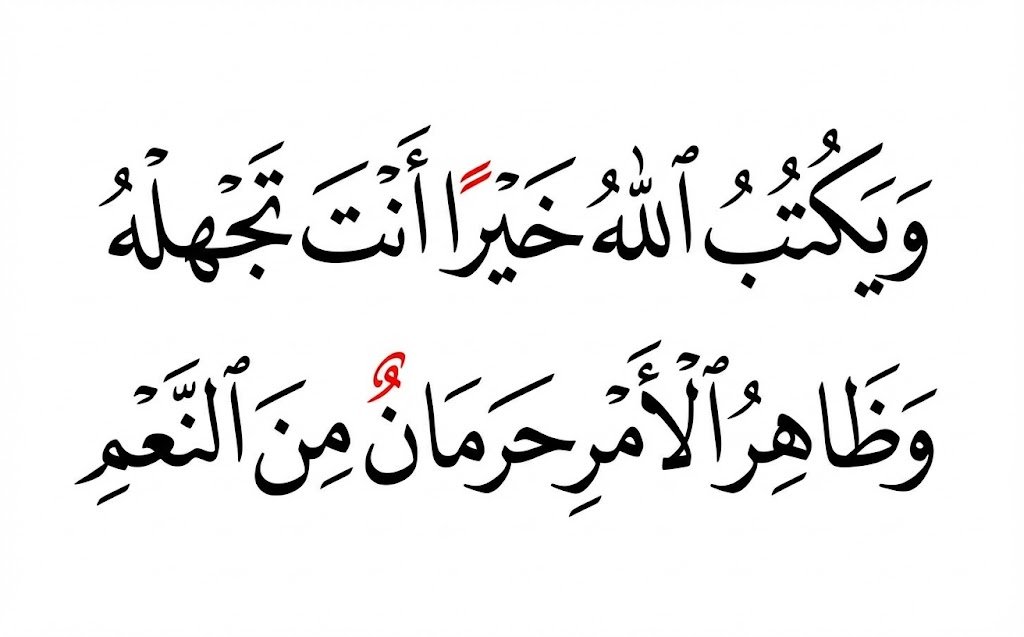 وَيَكْتُبُ ٱللهُ خَيْرًا أَنْتَ تَجْهَلْهُ
وَظَاهِرُ ٱلْأَمْرِ حَرَمَانٌ مِنَ ٱلنَّعْمِ